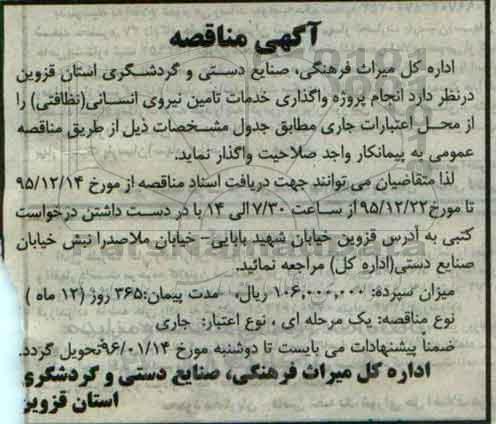 آگهی مناقصه
اداره کل میراث فرهنگی، صنایع دستی و گردشگری استان قزوین
درنظر دارد انجام پروژه واگذاری خدمات تامین نیروی انسانی(نظافتی) را
از محل اعتبارات جاری مطابق جدول مشخصات ذیل از طریق مناقصه
عمومی به پیمانکار واجد صلاحیت واگذار نماید.
لذا متقاضیان می توانند جهت دریافت اسناد مناقصه از مورخ ۹۵/۱۲/۱۴
تا مورخ ۹۵/۱۲/۲۲ از ساعت ۷/۳۰ الی ۱۴ با در دست داشتن درخواست
کتبی به آدرس قزوین خیابان شهید بابایی- خیابان ملاصدرا نبش خیابان
صنایع دستی(اداره کل) مراجعه نمائید.
میزان سپرده: ۱۰۶,۰۰۰,۰۰۰ ریال، مدت پیمان:۳۶۵ روز (۱۲ ماه )
نوع مناقصه: یک مرحله ای ، نوع اعتبار: جاری
ضمنا پیشنهادات می بایست تا دوشنبه مورخ ۹۶/۰۱/۱۴ تحویل گردد.
اداره کل میراث فرهنگی، صنایع دستی و گردشگری
استان قزوین